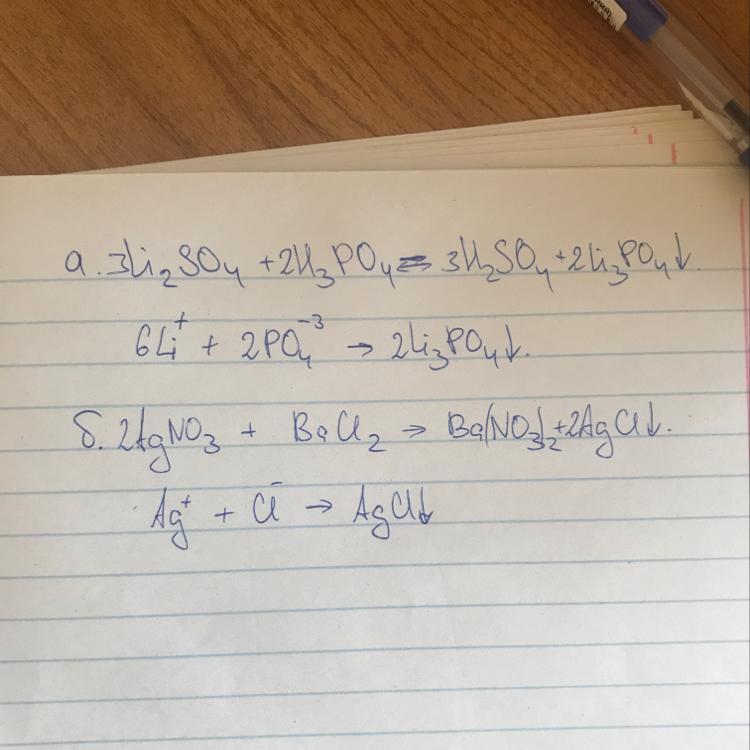 а. 3Li₂SO₄ + 2H₃PO₄ ⇌ 3H₂SO₄ + 2Li₃PO₄↓.
6Li⁺ + 2PO₄⁻³ → 2Li₃PO₄↓.
б. 2AgNO₃ + BaCl₂ → Ba(NO₃)₂ + 2AgCl↓.
Ag⁺ + Cl⁻ → AgCl↓